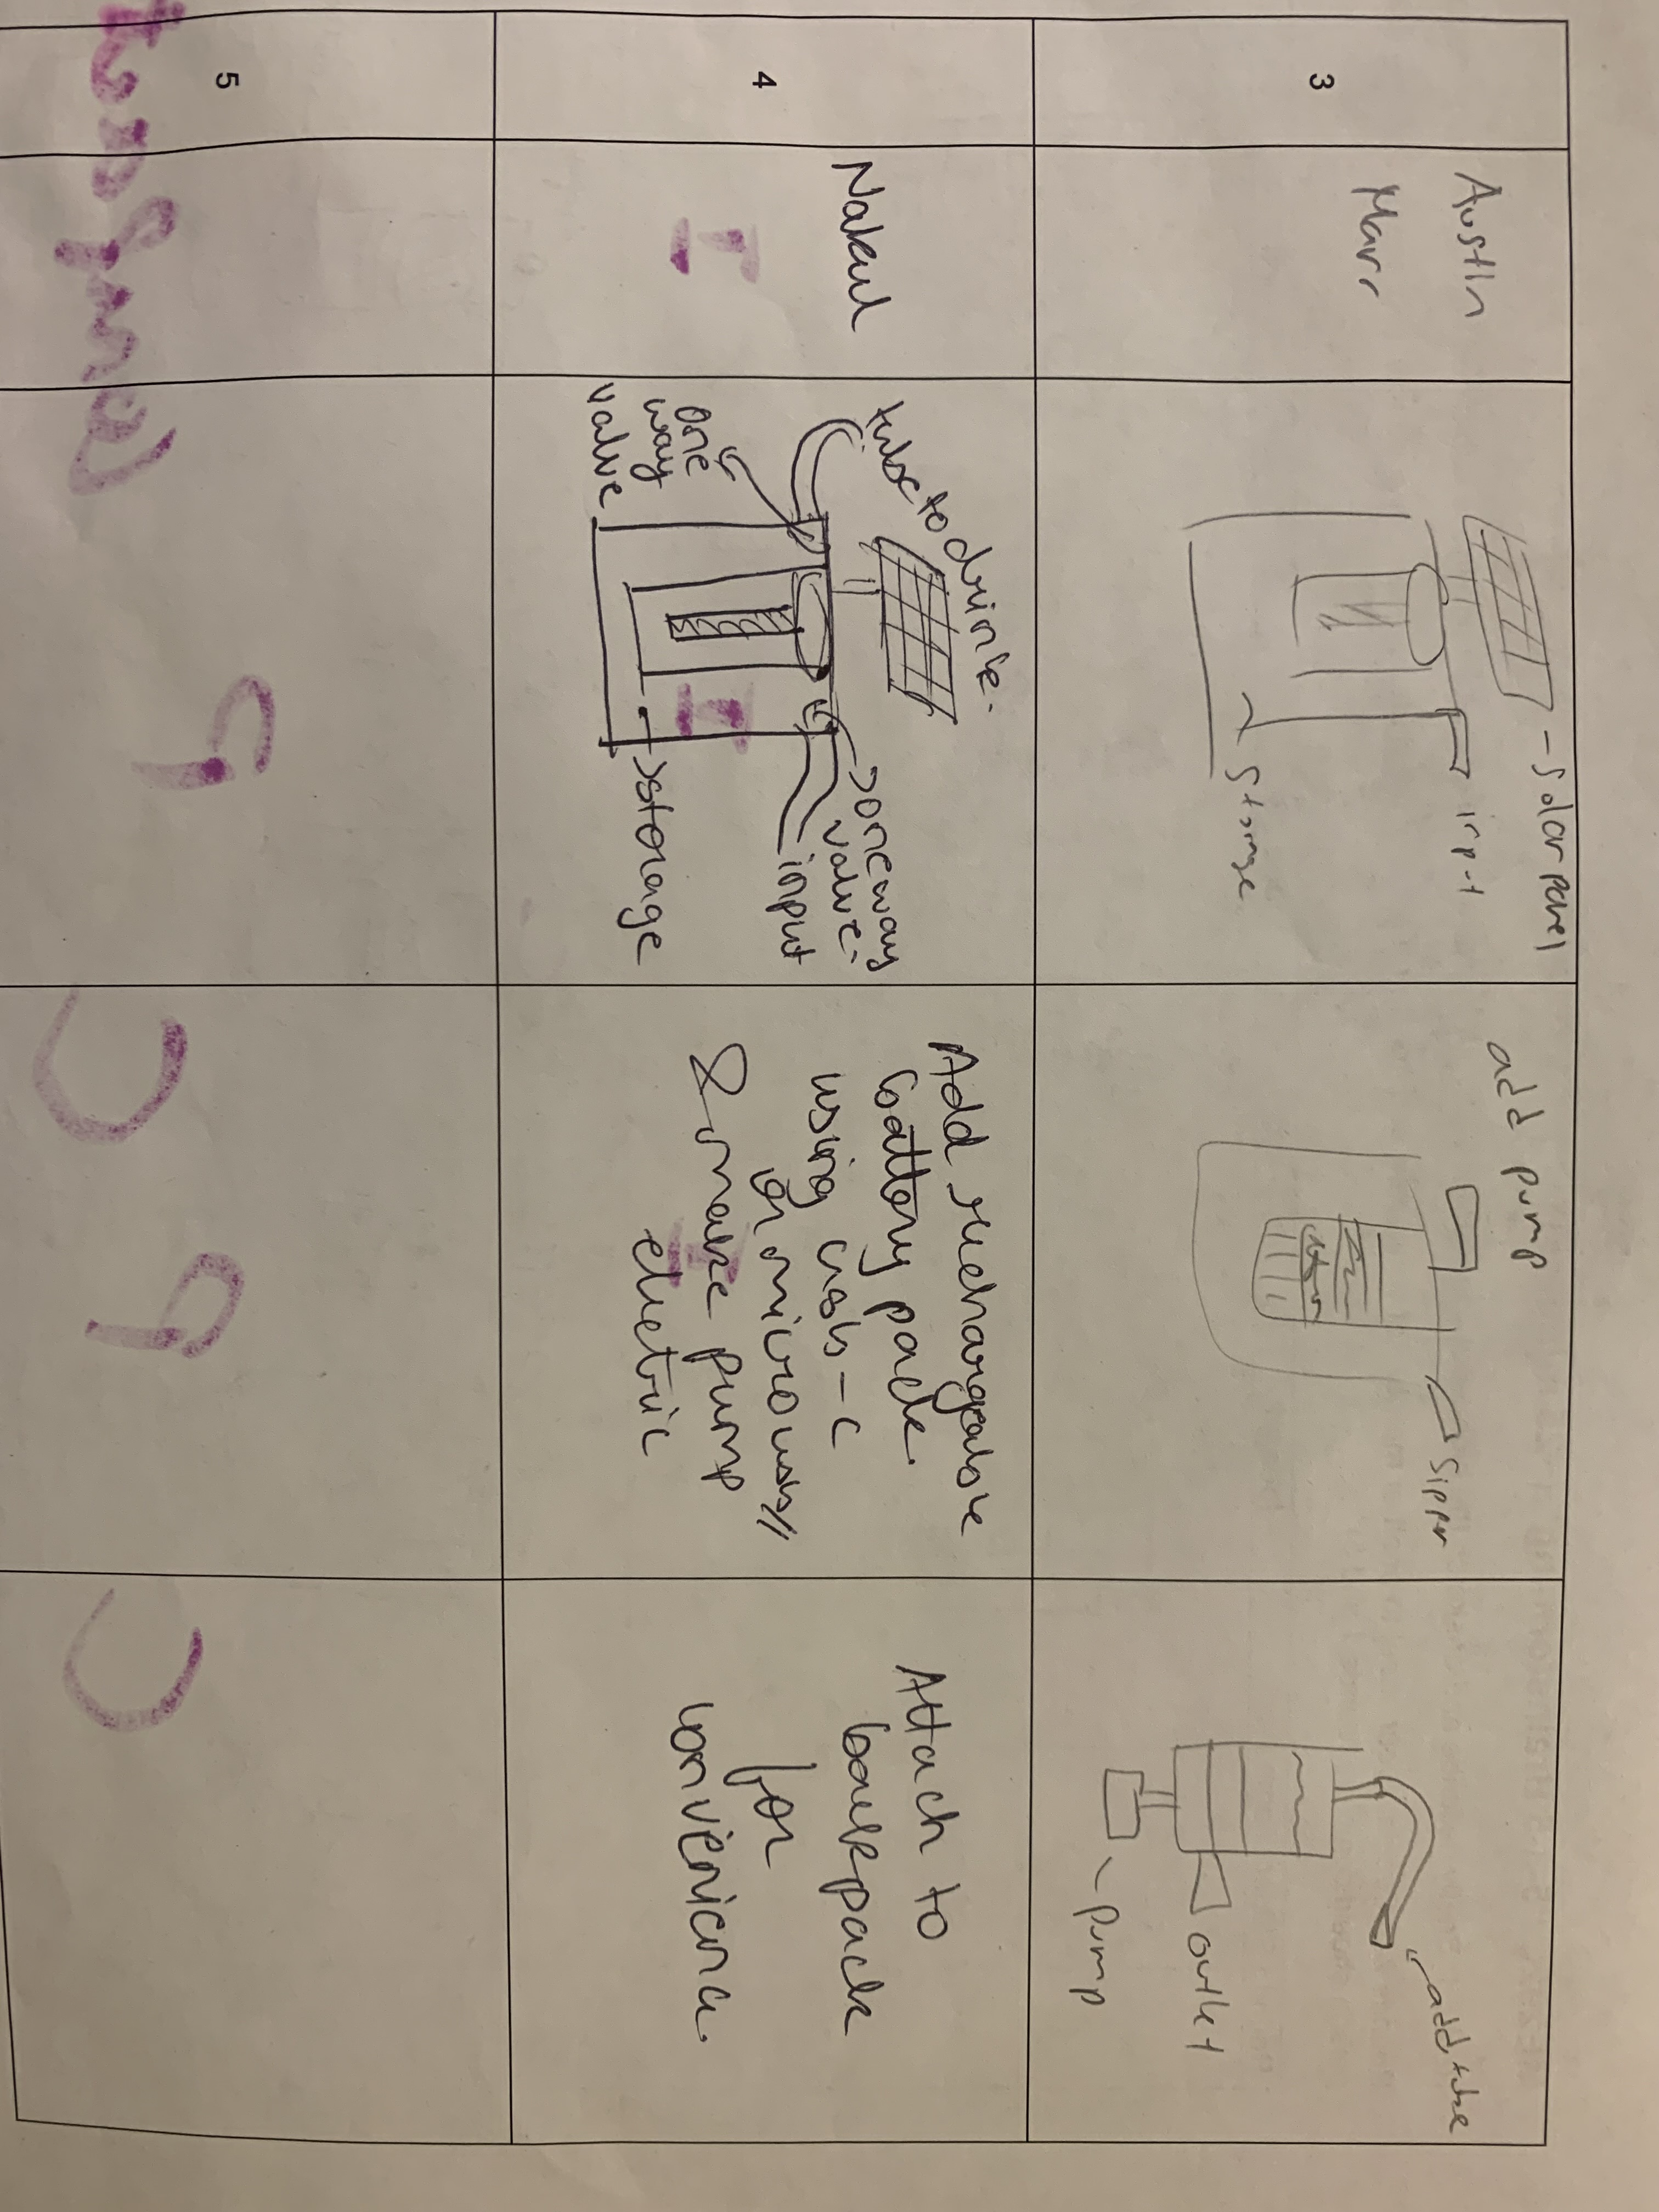 3
Austin
Marr
- Solar panel
input
Storage
add pump
Sipper
add tube
outlet
- Pump
4
Nakul
tube to drink.
one
way
valve
one way
valve.
input
storage
Add rechargeable
battery pack
using usb-c
or microusb//
& make pump
electric
Attach to
backpack
for
convenience.
5